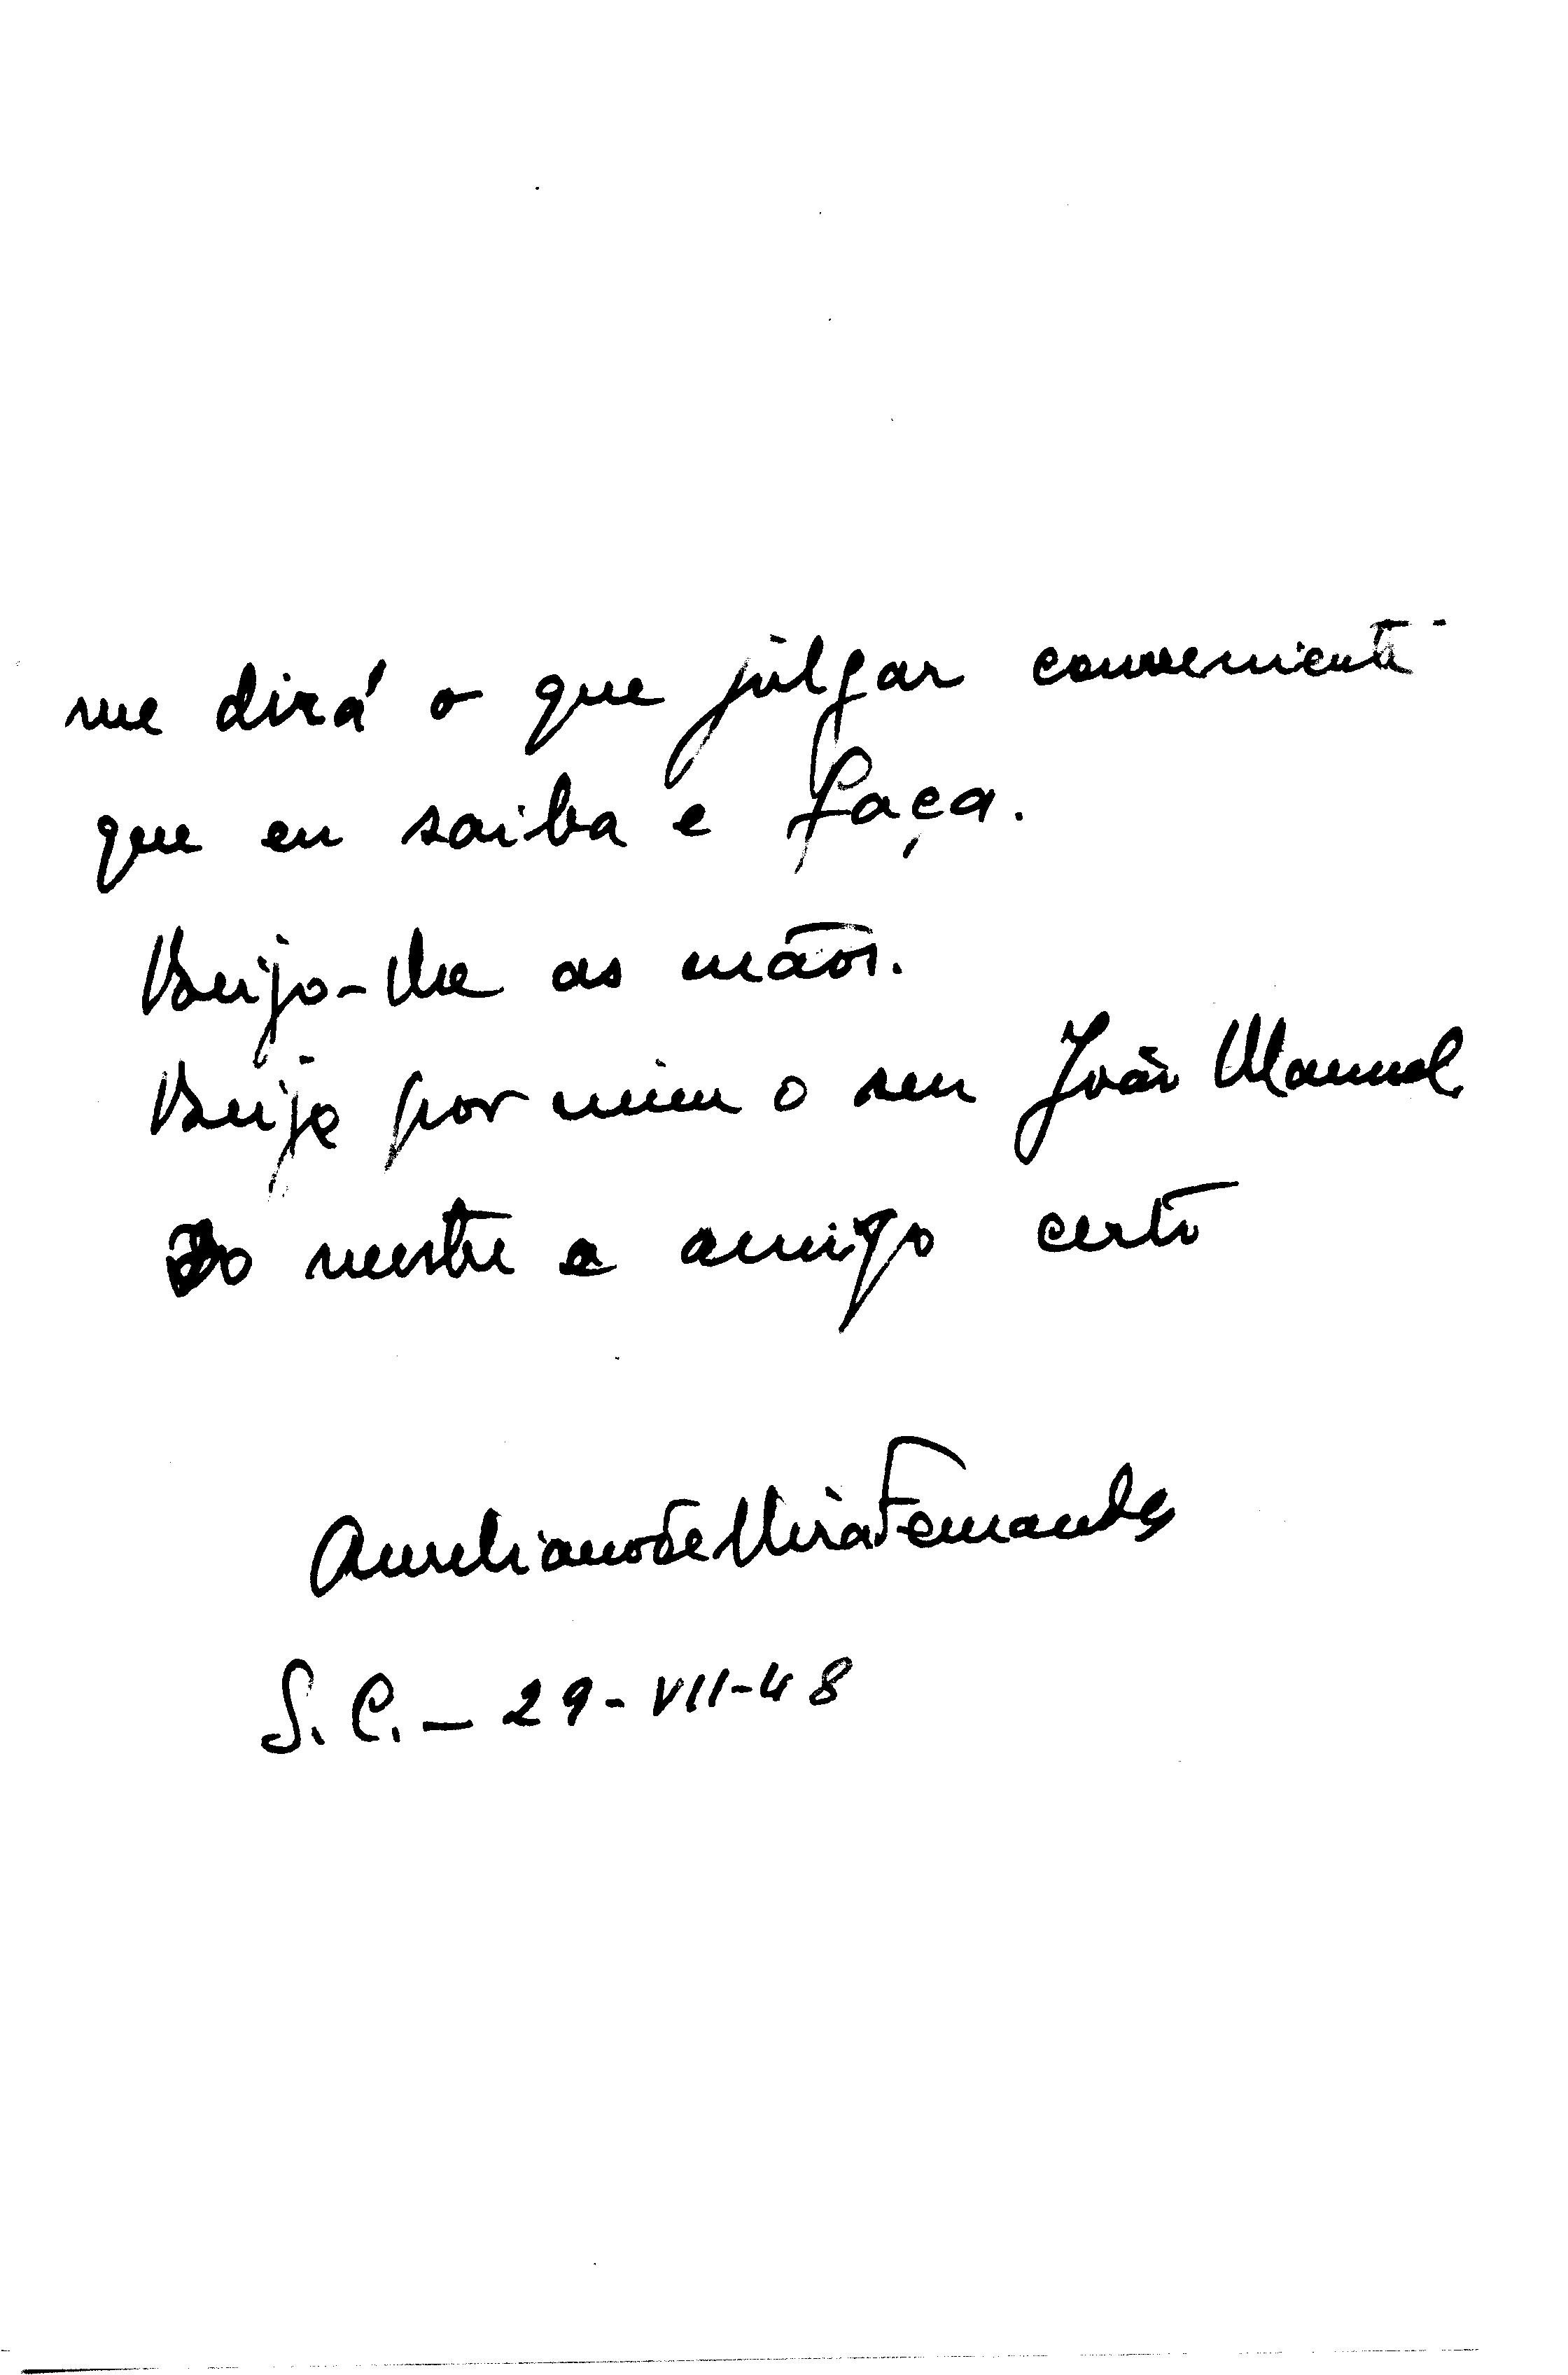 me dirá o que julgar conveniente
que eu saiba e faça.
Beijo-lhe as mãos.
Beije por mim o seu João Manuel
Do mestre e amigo certo
Aureliano de Mira Fernandes
S. C. – 29-VII-48